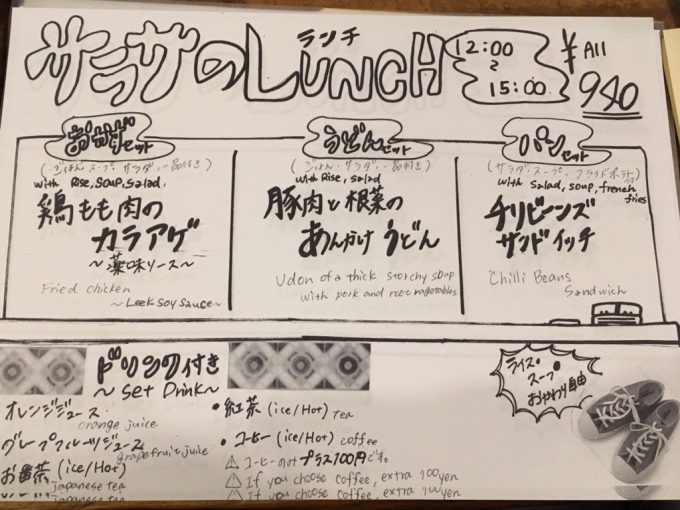 サラサのLUNCH
ランチ
12:00
~
15:00
¥ All
940
おかずセット
(ごはん・スープ・サラダ・一品付き)
with Rise, soup, salad,
鶏もも肉の
カラアゲ
~薬味ソース~
Fried chicken
~Leek soy sauce~
うどんセット
(ごはん・サラダ・一品付き)
with Rise, salad
豚肉と根菜の
あんかけうどん
Udon of a thick storchy soup
with pork and root vegetables
パンセット
(サラダ・スープ・フライドポテト)
with salad, soup, french
fries
チリビーンズ
サンドイッチ
Chilli Beans
Sandwich
ドリンク付き
~ Set Drink~
オレンジジュース
orange juice
グレープフルーツジュース
grapefruit juile
お番茶 (ice/Hot)
japanese tea
japanese tea
• 紅茶 (ice/Hot) tea
• コーヒー (ice/Hot) coffee
⚠ コーヒーのみプラス100円です。
⚠ If you choose coffee, extra 100yen
⚠ If you choose coffee, extra 100yen
ライス・
スープ
おかわり自由